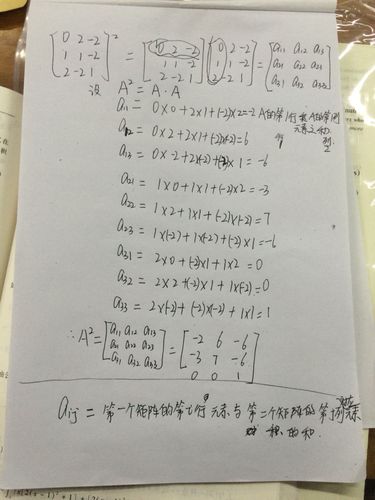 [0 2 -2; 1 1 -2; 2 -2 1]² = [0 2 -2; 1 1 -2; 2 -2 1] [0 2 -2; 1 1 -2; 2 -2 1] = [a11 a12 a13; a21 a22 a23; a31 a32 a33]
设 A² = A · A
a11 = 0×0+2×1+(-2)×2=-2 A的第1行 A的第1列
元素之和.
a12 = 0×2+2×1+(-2)(-2)=6
a13 = 0×-2+2×(-2)+(-2)×1=-6
a21 = 1×0+1×1+(-2)×2=-3
a22 = 1×2+1×1+(-2)×(-2)=7
a23 = 1×(-2)+1×(-2)+(-2)×1=-6
a31 = 2×0+(-2)×1+1×2=0
a32 = 2×2+(-2)×1+1×(-2)=0
a33 = 2×(-2)+(-2)×(-2)+1×1=1
∴A²=[a11 a12 a13; a21 a22 a23; a31 a32 a33] = [-2 6 -6; -3 7 -6; 0 0 1]
aij = 第一个矩阵的第i行元素与第二个矩阵的第j列元素
积的和.